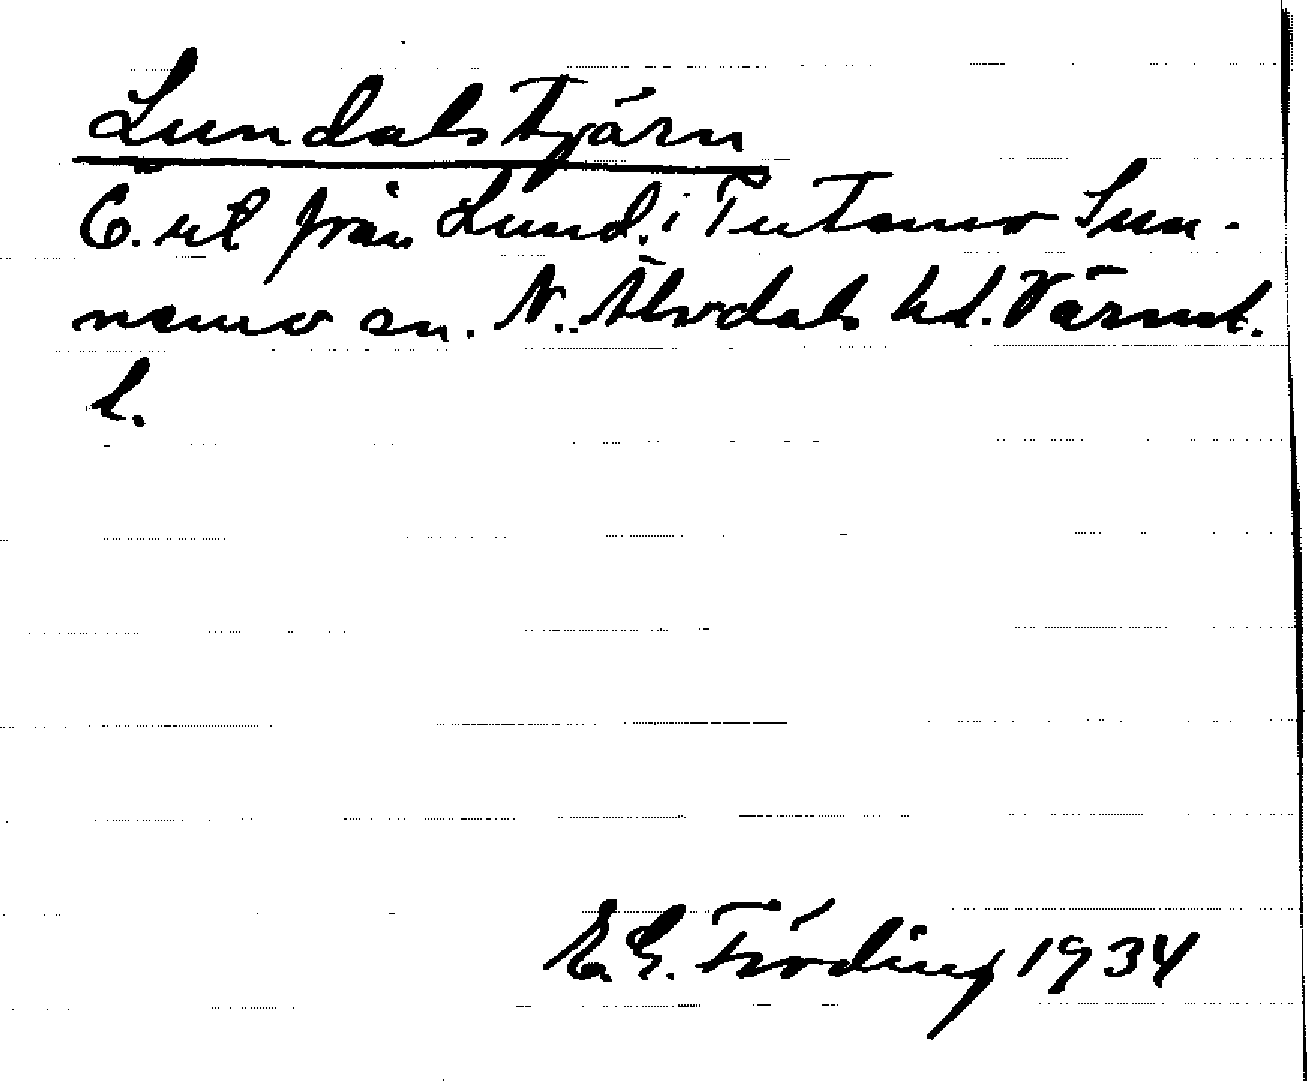 Lundalstjärn
Ö. ut från Lund, i Tutemo Sun-
nemo sn. N. Älvdals hd. Värml.
l.
E.G. Fröding 1934